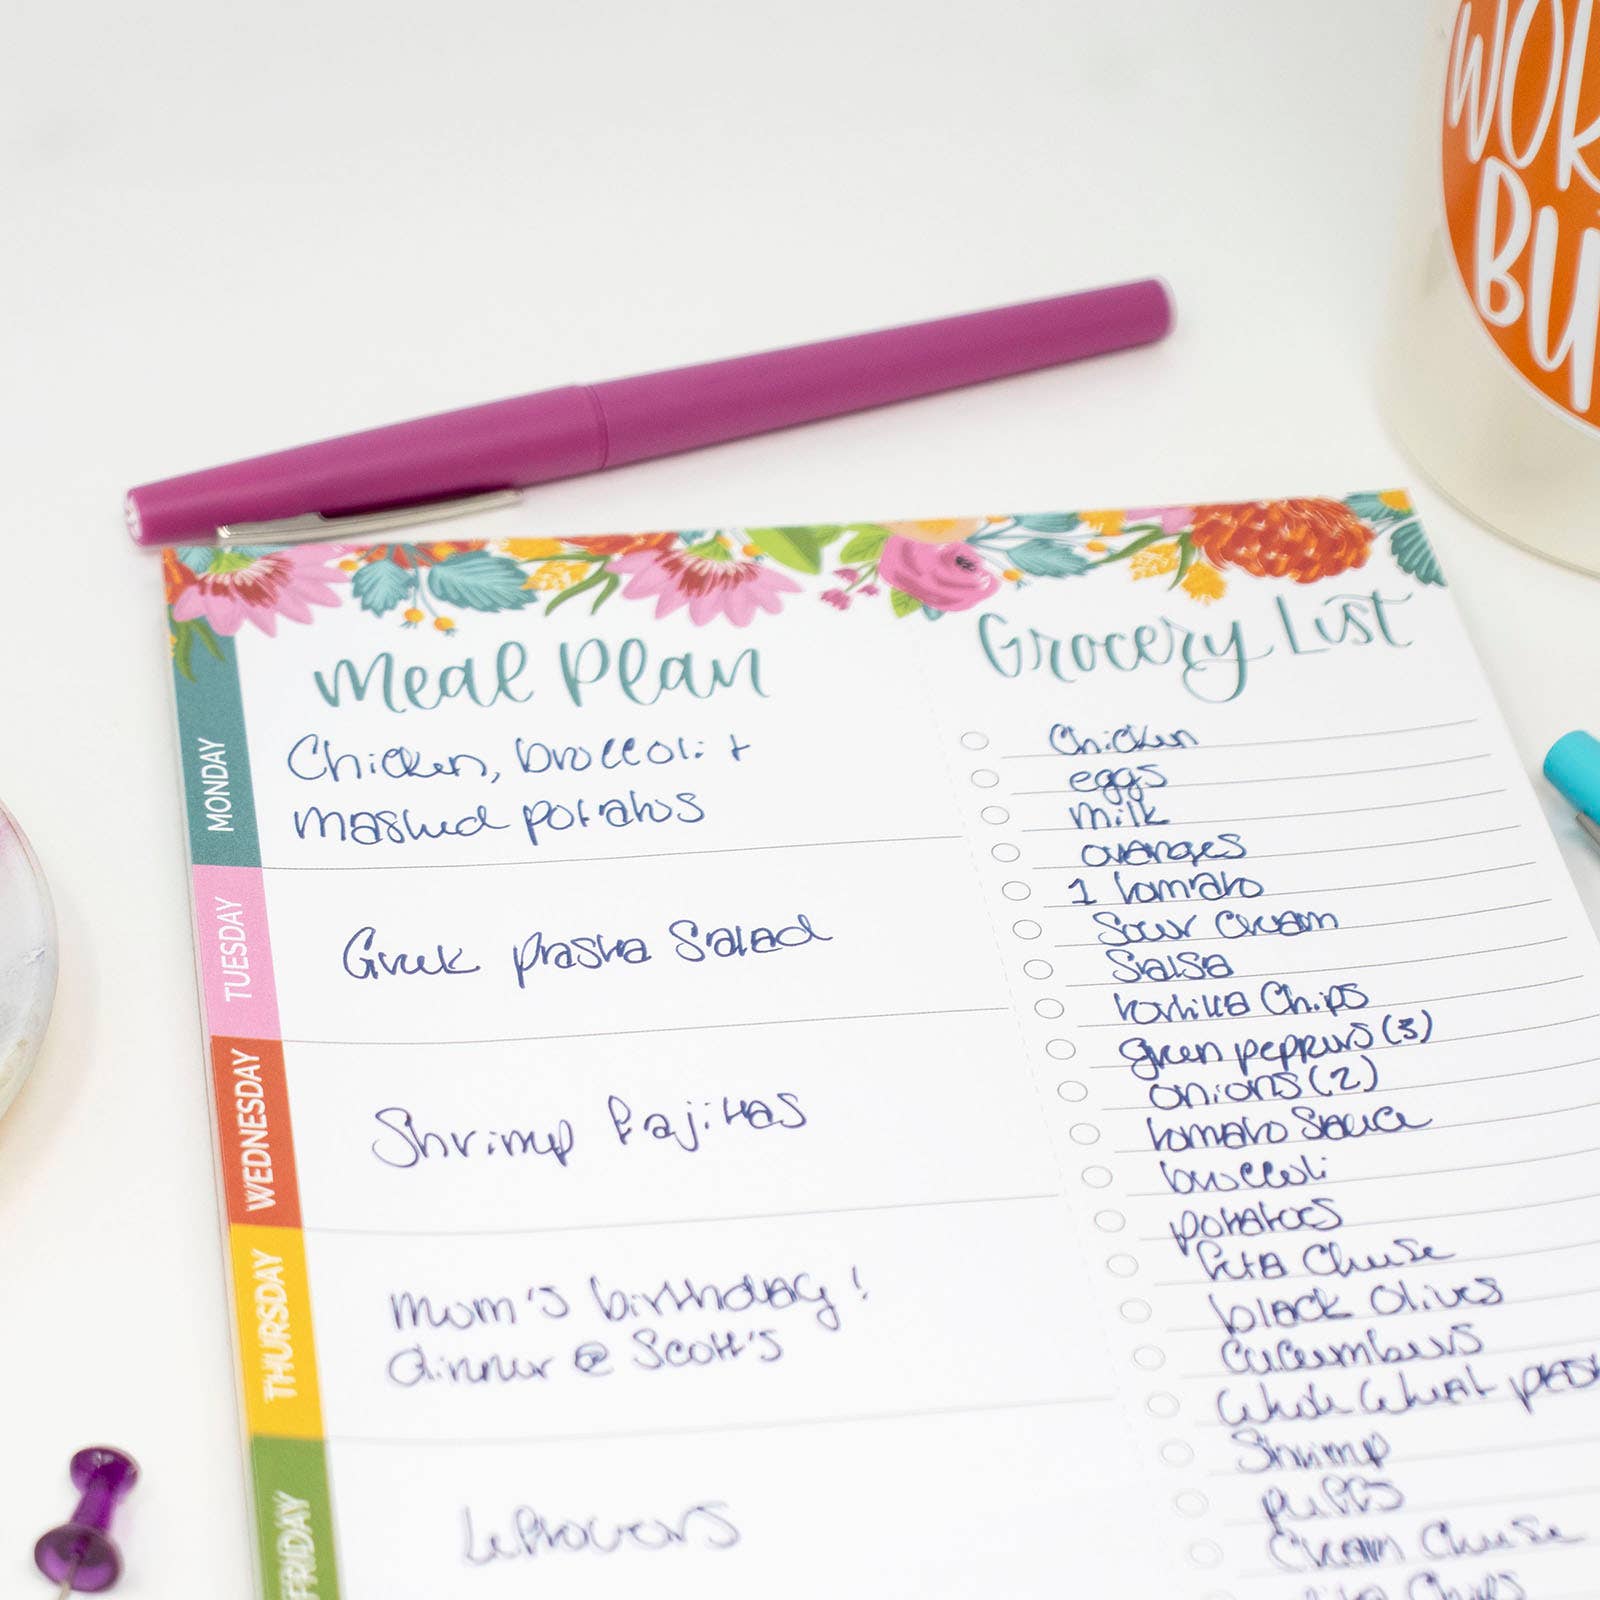 WOR
BU
Meal Plan
MONDAY
Chicken, broccoli +
mashed potatoes
TUESDAY
Greek pasta Salad
WEDNESDAY
Shrimp fajitas
THURSDAY
mom's birthday!
dinner @ Scott's
FRIDAY
leftovers
Grocery List
Chicken
eggs
milk
oranges
1 tomato
Sour Cream
Salsa
tortilla Chips
green peppers (3)
onions (2)
tomato Sauce
broccoli
potatoes
feta Cheese
black Olives
Cucumbers
Whole Wheat
Shrimp
puffs
Cream Cheese
Chips